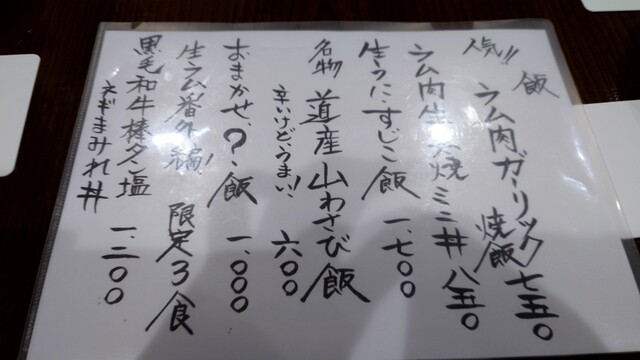 飯
人気!! ラム肉ガーリック焼飯 七五〇
ラム肉生姜焼ミニ丼 八五〇
生うに・すじこ飯 一、七〇〇
名物 道産山わさび飯
辛いけどうまい! 六〇〇
おまかせ、?・飯 一、〇〇〇
生ラム番外編! 限定3食
黒毛和牛榛タン塩
ネギまみれ丼 一、三〇〇